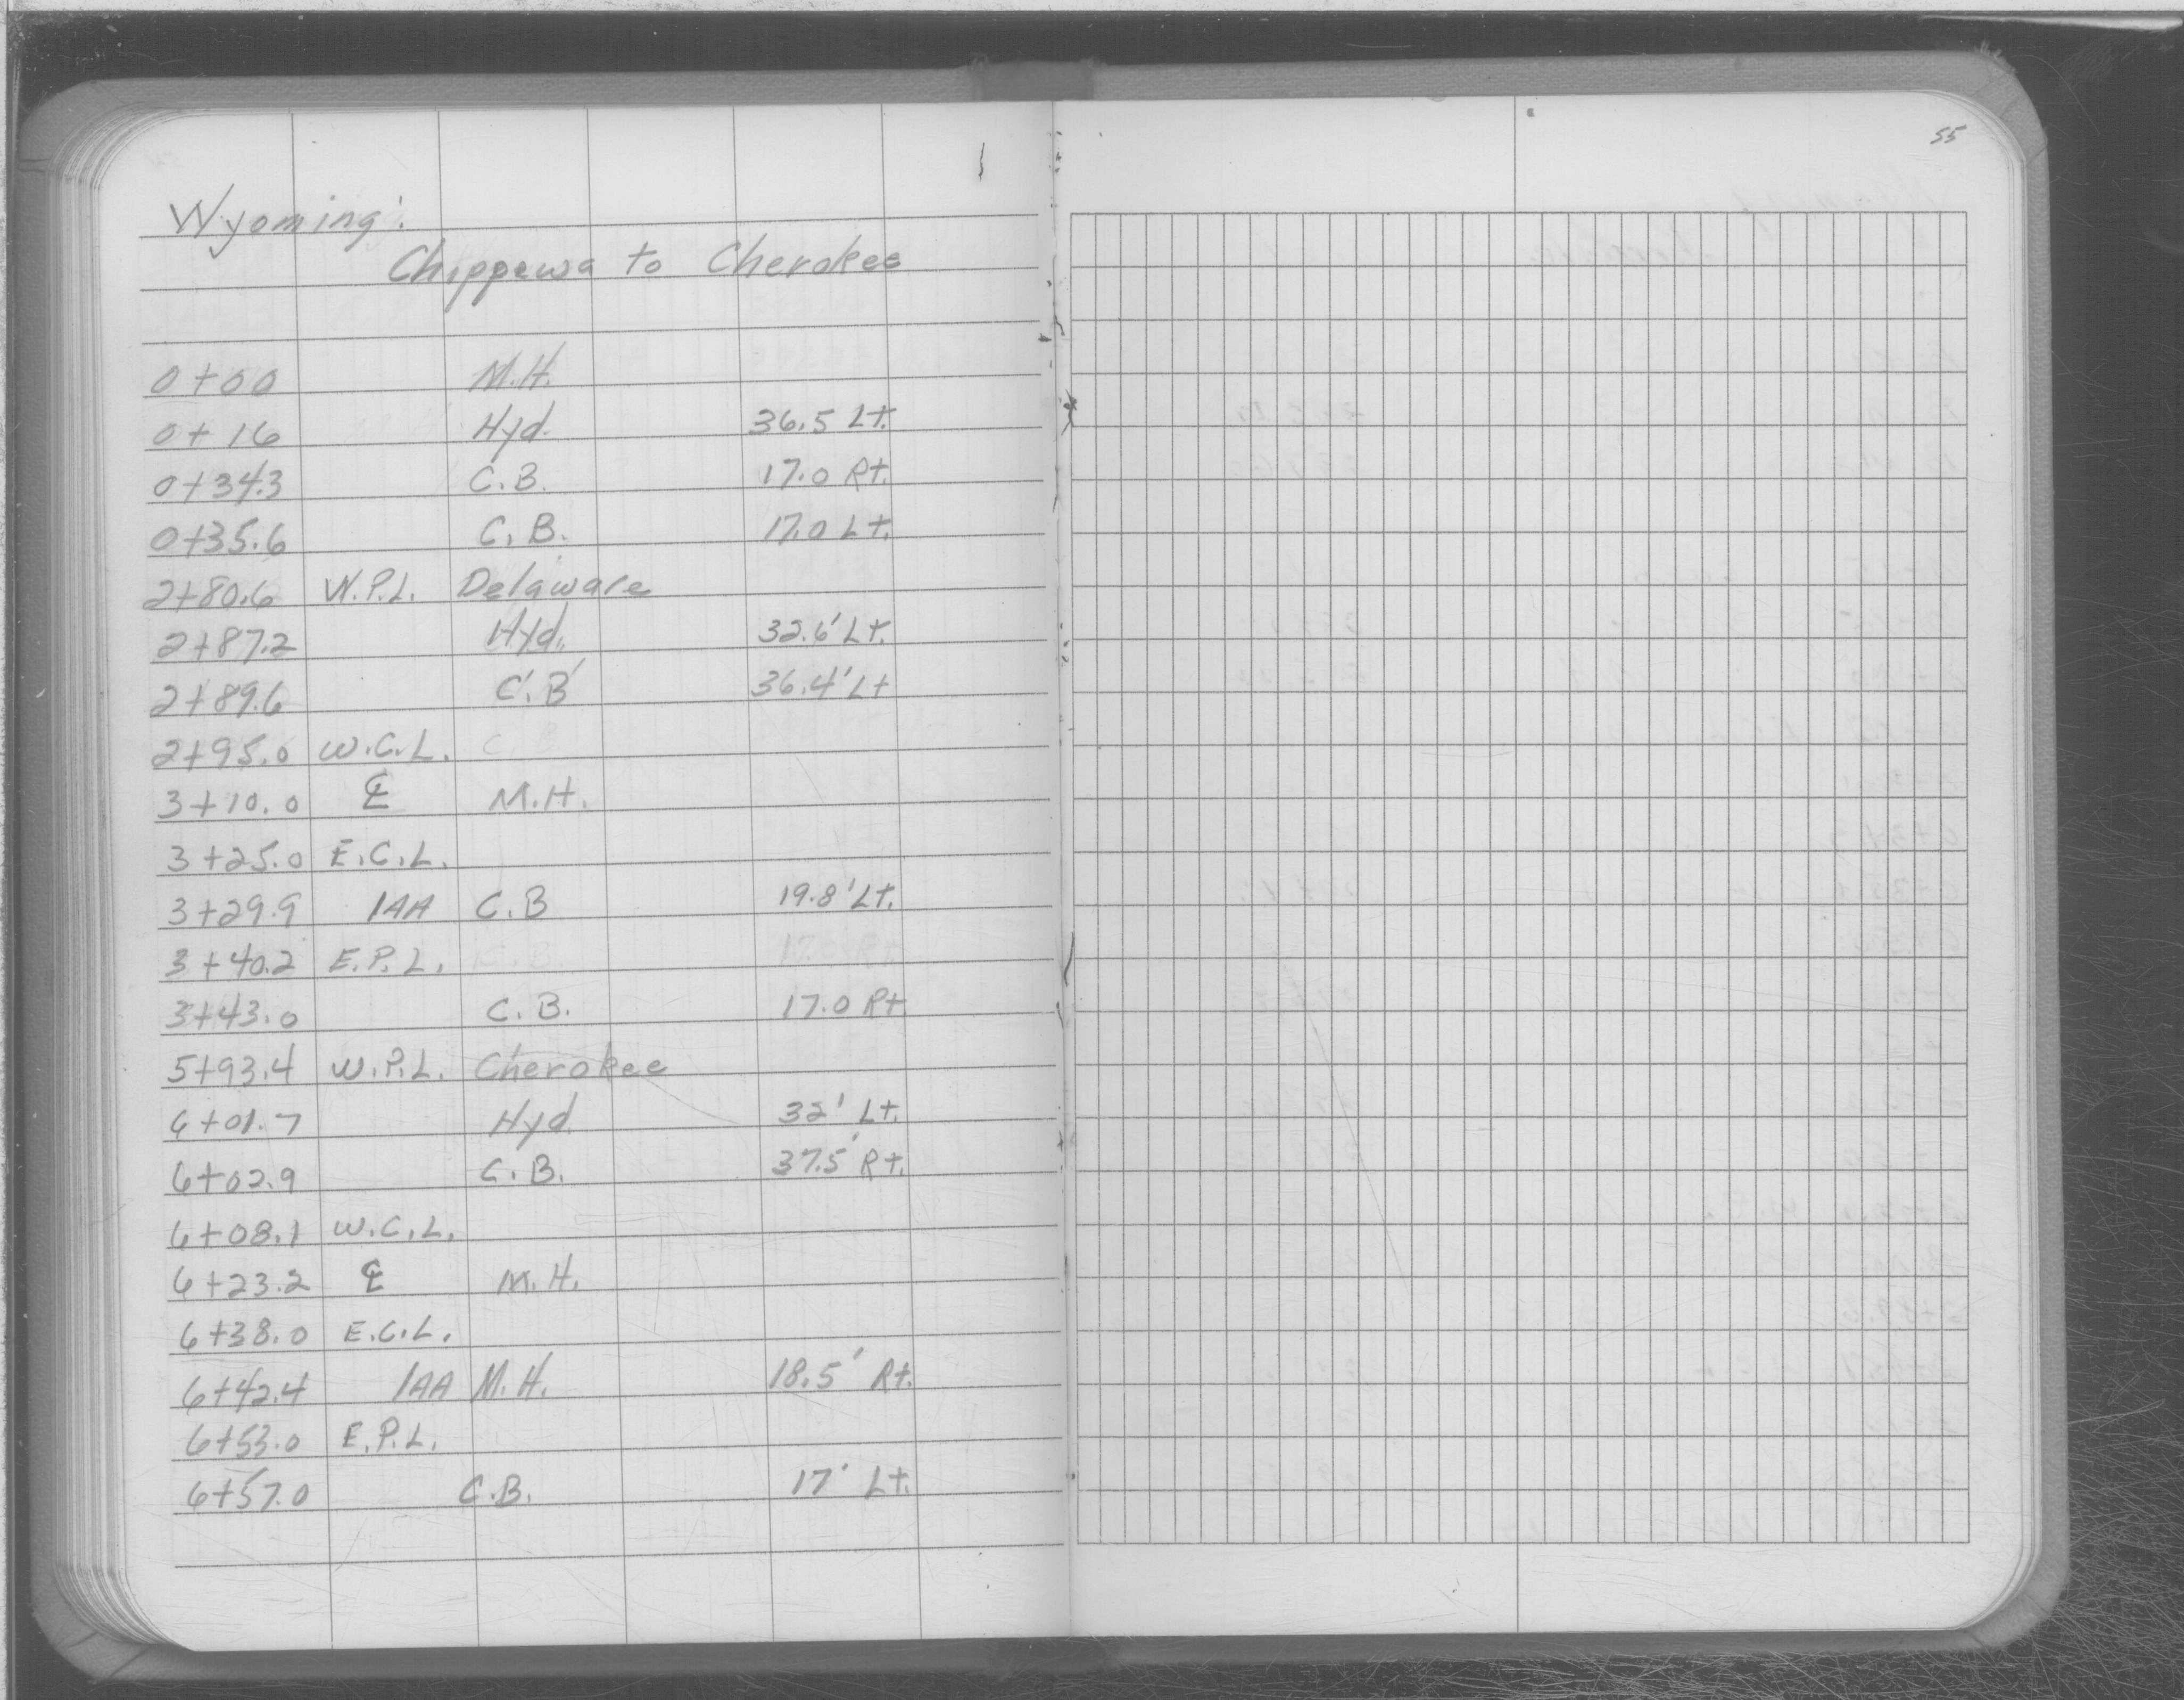 55
Wyoming:
Chippewa to Cherokee
0+00 M.H.
0+16 Hyd. 36.5 Lt.
0+34.3 C.B. 17.0 Rt.
0+35.6 C.B. 17.0 Lt.
2+80.6 W.P.L. Delaware
2+87.2 Hyd. 32.6' Lt.
2+89.6 C.B 36.4' Lt
2+95.0 W.C.L.
3+10.0 ℄ M.H.
3+25.0 E.C.L.
3+29.9 1AA C.B 19.8' Lt.
3+40.2 E.P.L.
3+43.0 C.B. 17.0 Rt.
5+93.4 W.P.L. Cherokee
6+01.7 Hyd 32' Lt.
6+02.9 C.B. 37.5' Rt.
6+08.1 W.C.L.
6+23.2 ℄ M.H.
6+38.0 E.C.L.
6+42.4 1AA M.H. 18.5' Rt.
6+53.0 E.P.L.
6+57.0 C.B. 17' Lt.